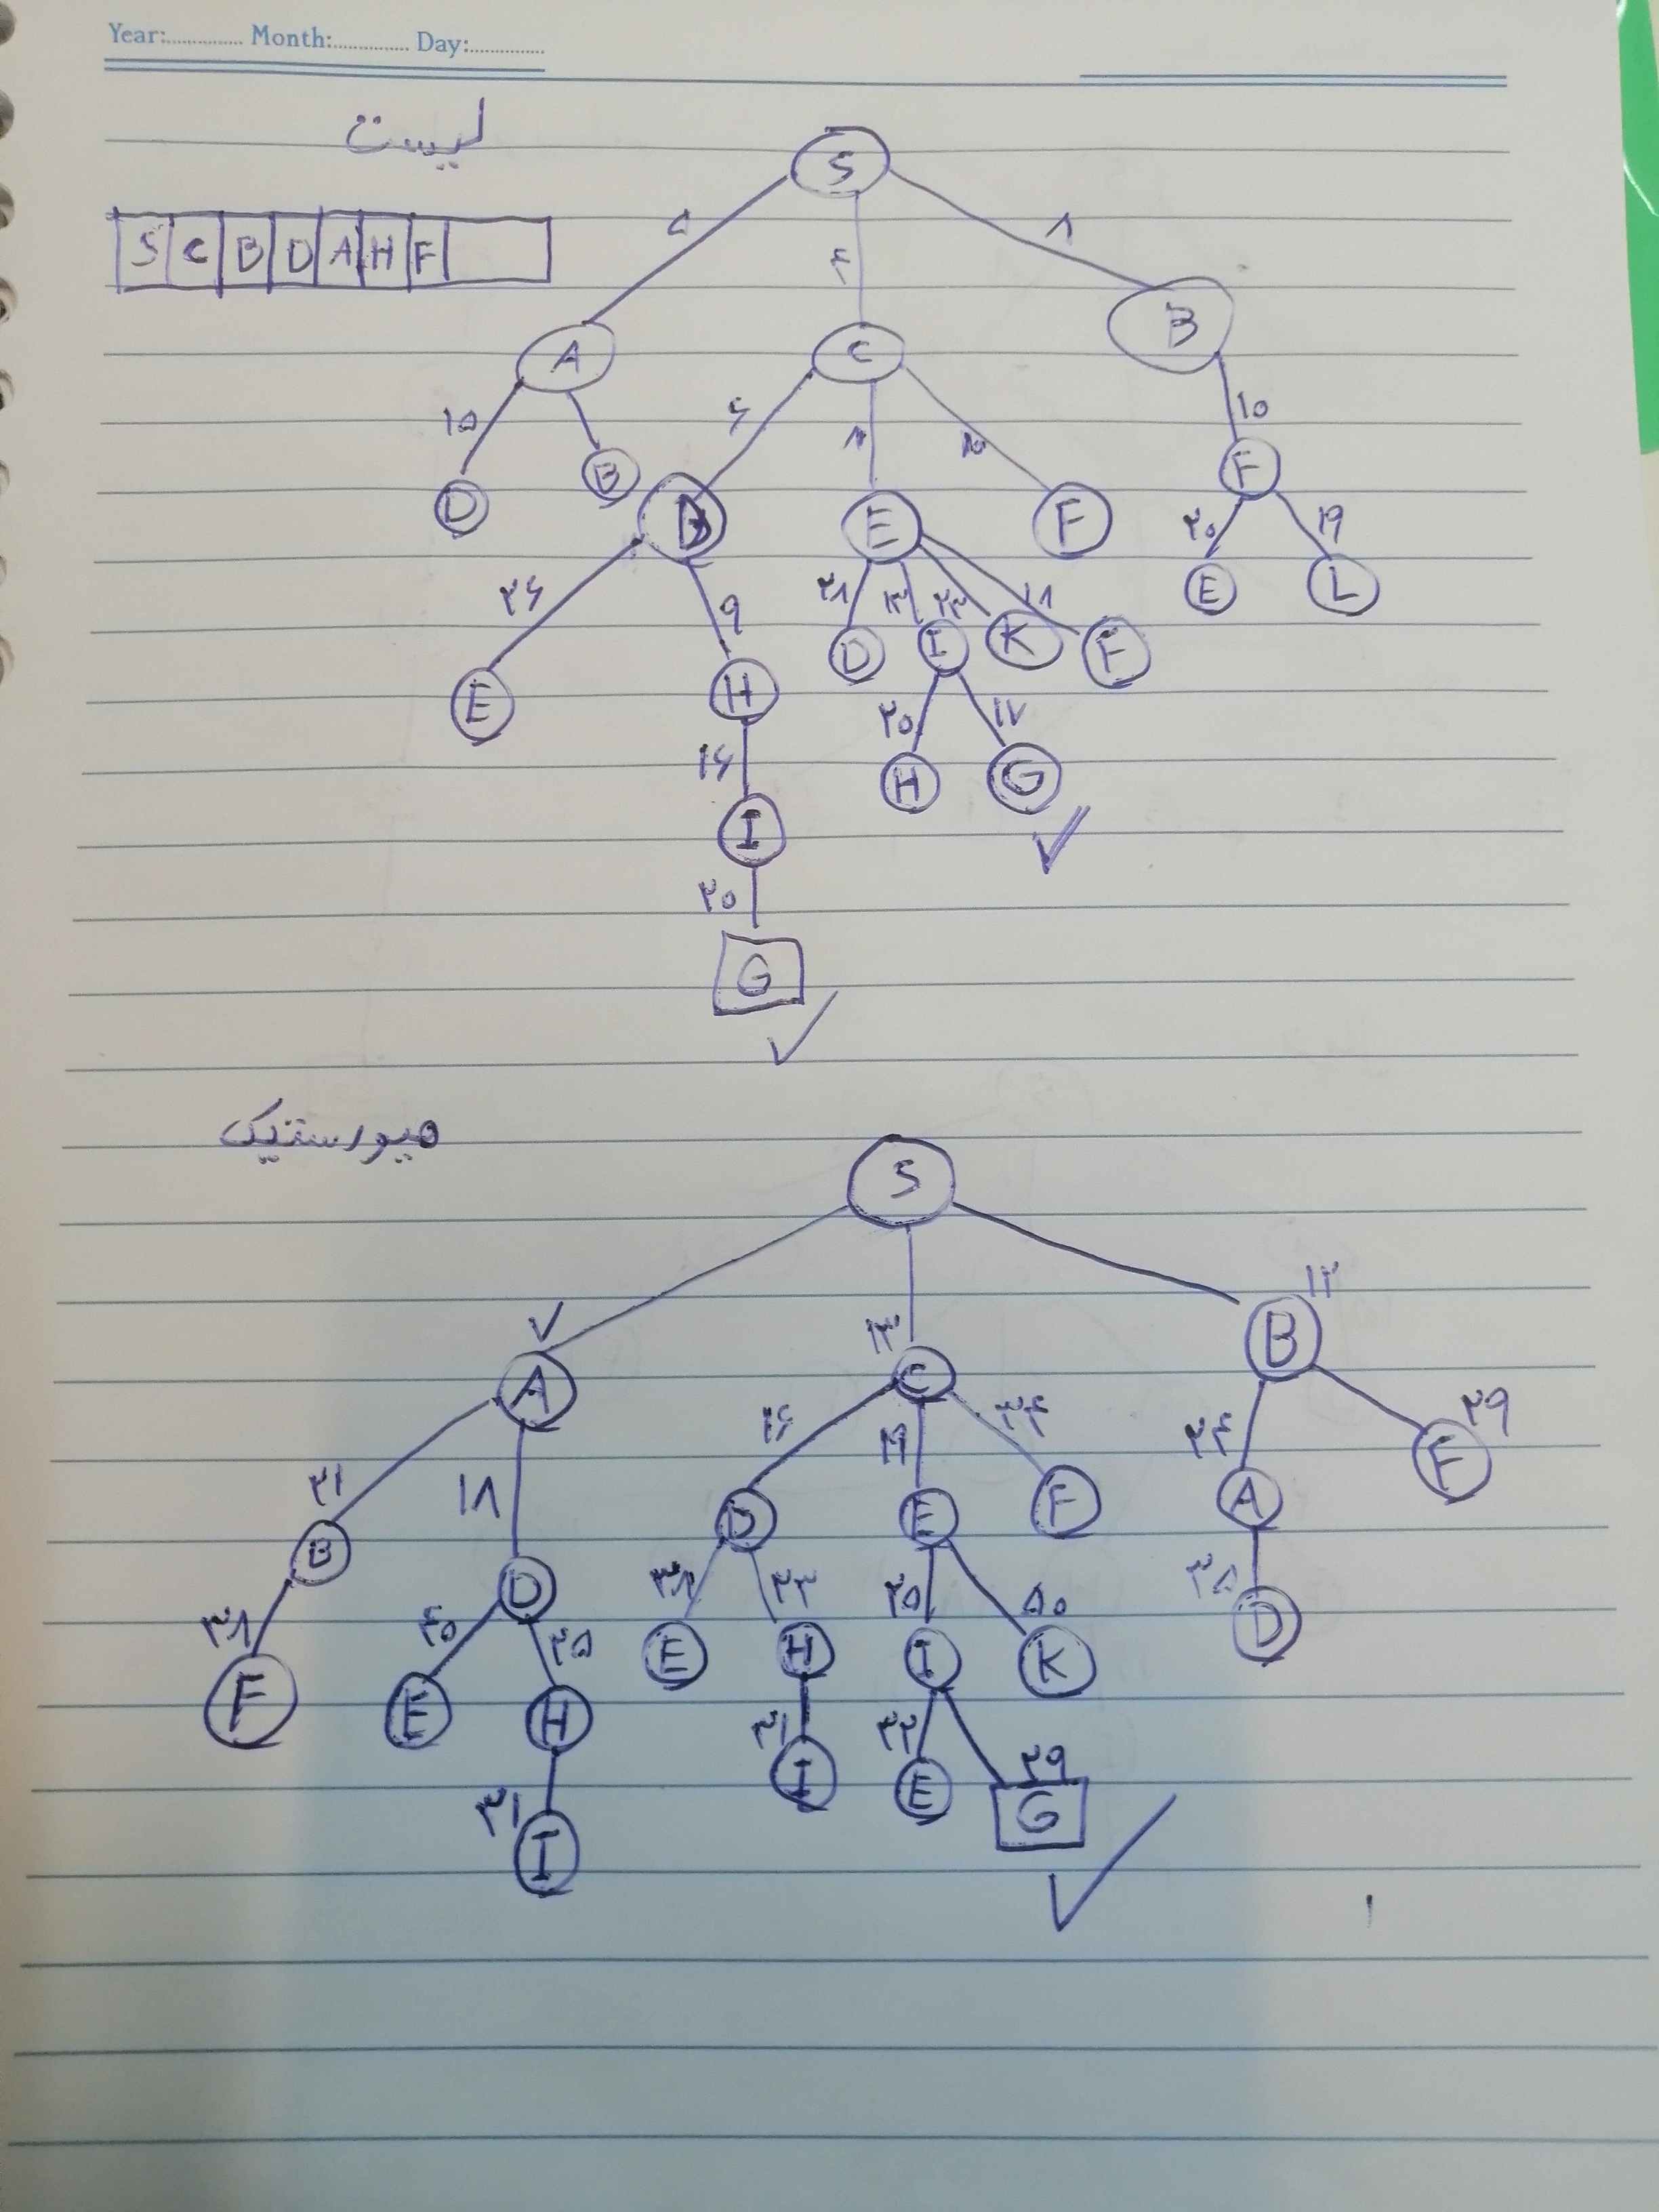 Year: Month: Day:
لیست
S
S C B D A H F
۵ ۴ ۱
A C B
۱۵ ۶ ۱۰
D B D E F F
۲۰ ۱۹
E L
۲۶ ۹ ۲۱ ۱۳ ۲۳ ۱۸
E H D I K F
۱۶ ۲۰ ۱۷
I H G
۲۰
G
هیورستیک
S
۷ ۱۳ ۱۲
A C B
۲۱ ۱۸ ۱۶ ۱۹ ۳۴ ۲۴ ۲۹
B D D E F A F
۳۸ ۴۰ ۲۵ ۳۸ ۲۳ ۲۵ ۵۰ ۳۵
F E H E H I K D
۳۱ ۳۱ ۳۲ ۲۹
I I E G